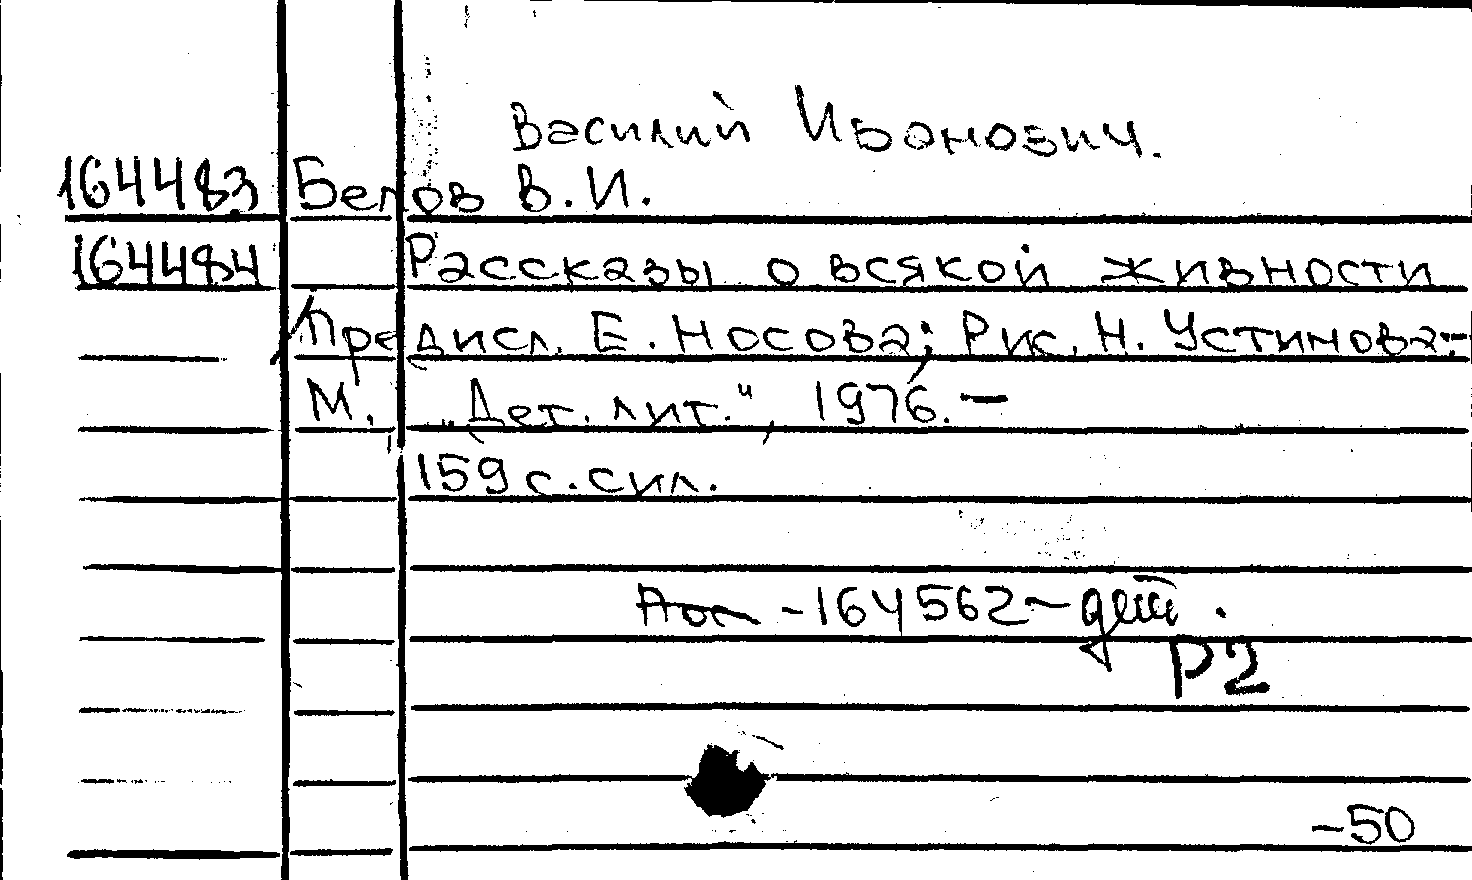 Василий Иванович.
164483 Белов В.И.
164484 Рассказы о всякой живности
/Предисл. Е. Носова; Рис. Н. Устинова.-
М. „Дет. лит.", 1976. –
159 с. с ил.
- 164562 - дет.
Р2
-50